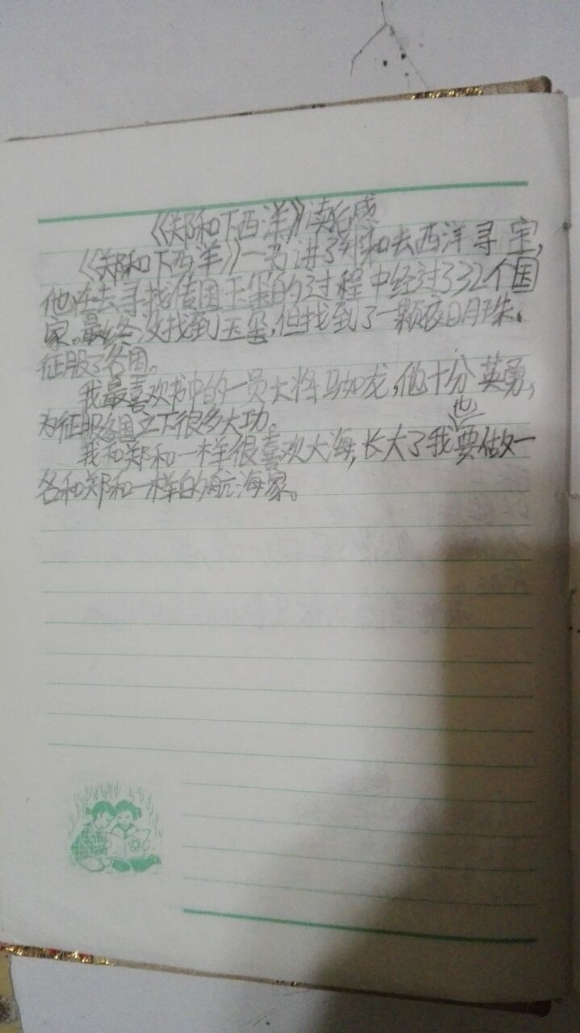 《郑和下西洋》读后感
《郑和下西洋》一书讲了郑和去西洋寻宝,
他在去寻找传国玉玺的过程中经过了32个国
家。最终没找到玉玺,但找到了一颗夜明珠,
征服了各国。
我最喜欢书中的一员大将马如龙,他十分英勇,
为征服各国立下很多大功。
我和郑和一样很喜欢大海,长大了我也要做一
名和郑和一样的航海家。